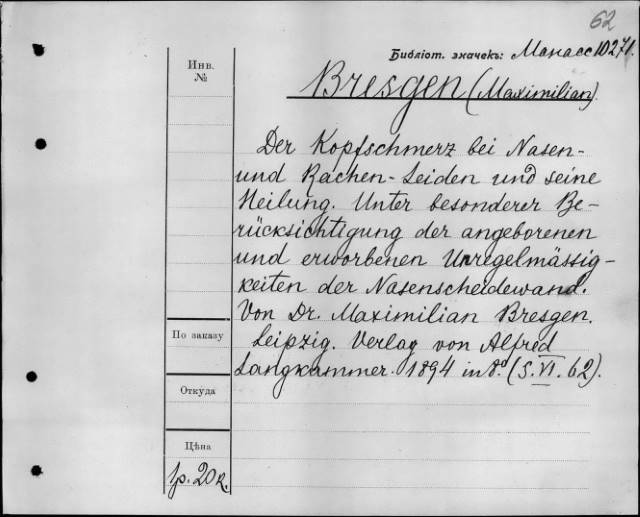 62
Библіот. значекъ: Манасс 10271.
Инв.
№
Bresgen (Maximilian).
Der Kopfschmerz bei Nasen-
und Rachen-Leiden und seine
Heilung. Unter besonderer Be-
rücksichtigung der angeborenen
und erworbenen Unregelmässig-
keiten der Nasenscheidewand.
Von Dr. Maximilian Bresgen.
Leipzig. Verlag von Alfred
Langkammer. 1894 in 8.° (S. VI. 62).
По заказу
Откуда
Цѣна
1р. 20к.